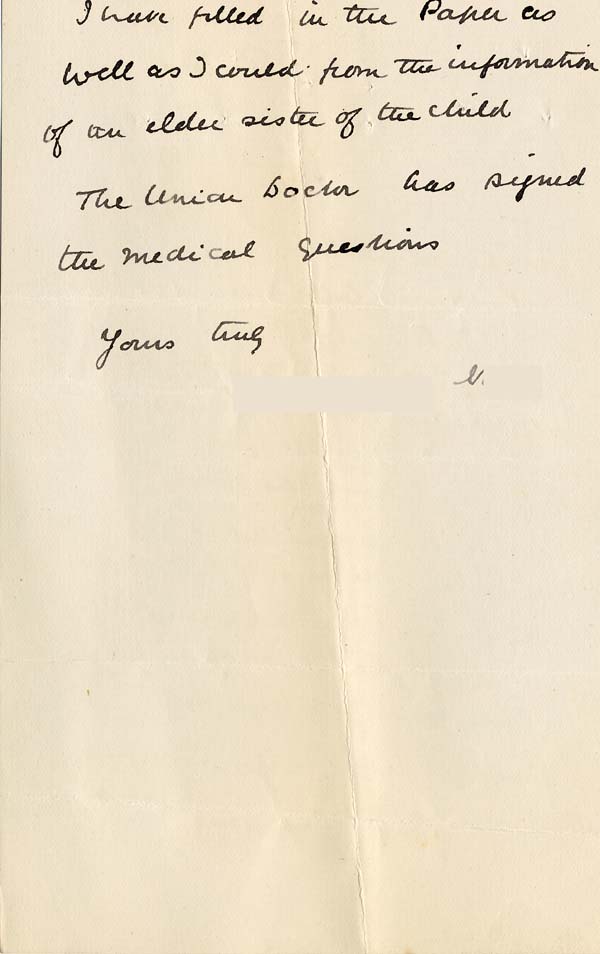 I have filled in the Paper as
well as I could from the information
of an elder sister of the child
The Union Doctor has signed
the medical questions
Yours truly